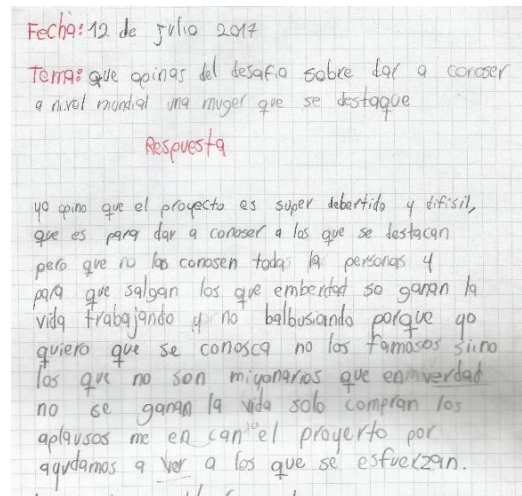 Fecha: 12 de julio 2017
Tema: que opinas del desafio sobre dar a conoser
a nivel mundial una muger que se destaque
Respuesta
yo opino que el proyecto es super debertido y difisil,
que es para dar a conoser a los que se destacan
pero que no los conosen todas la personas y
para que salgan los que emberdad se ganan la
vida trabajando y no balbusiando porque yo
quiero que se conosca no los famosos siino
los que no son miyonarios que enmverdad
no se ganan la vida solo compran los
aplausos me en can el proyerto por
aqudamos a ver a los que se esfuerzan.